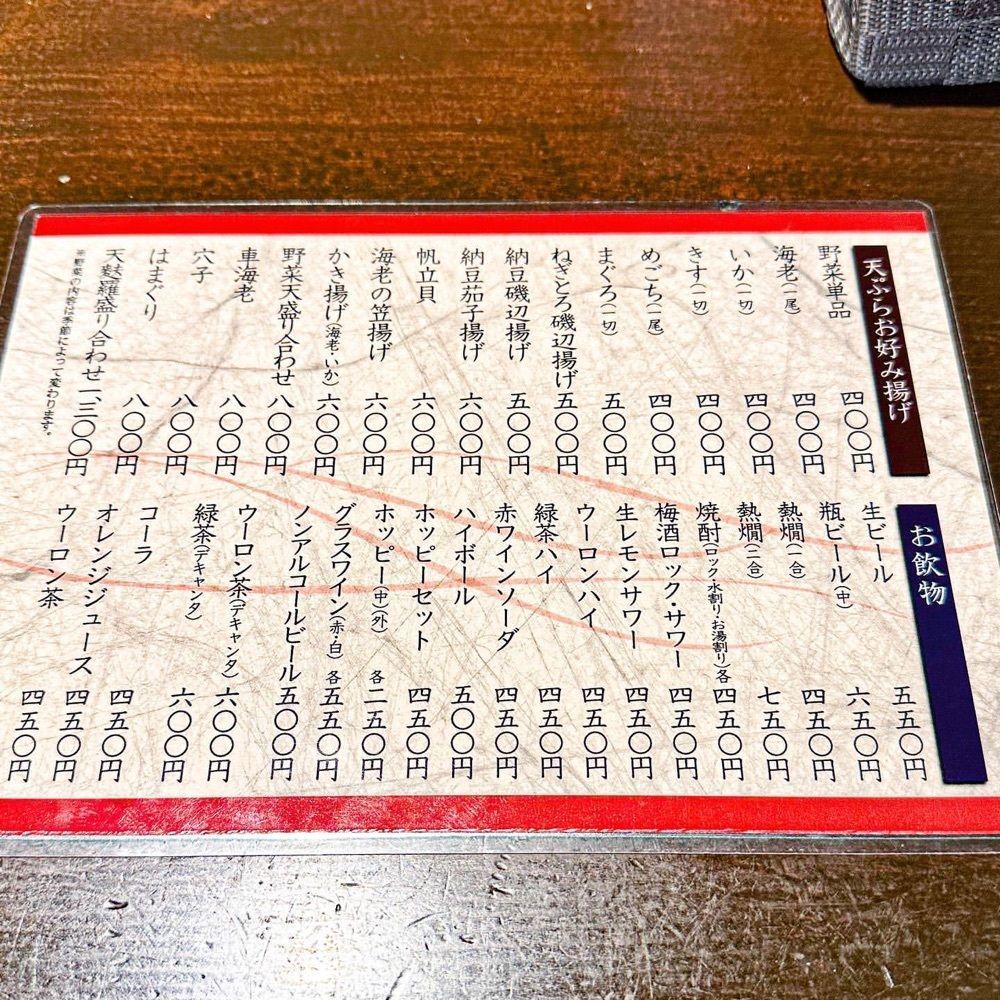 天ぷらお好み揚げ
野菜単品 四〇〇円
海老(一尾) 四〇〇円
いか(一切) 四〇〇円
きす(一切) 四〇〇円
めごち(一尾) 四〇〇円
まぐろ(一切) 五〇〇円
ねぎとろ磯辺揚げ 五〇〇円
納豆磯辺揚げ 五〇〇円
納豆茄子揚げ 六〇〇円
帆立貝 六〇〇円
海老の笠揚げ 六〇〇円
かき揚げ(海老・いか) 六〇〇円
野菜天盛り合わせ 八〇〇円
車海老 八〇〇円
穴子 八〇〇円
はまぐり 八〇〇円
天麩羅盛り合わせ 一、三〇〇円
※野菜の内容は季節によって変わります。
お飲物
生ビール 五五〇円
瓶ビール(中) 六五〇円
熱燗(一合) 四五〇円
熱燗(二合) 七五〇円
焼酎(ロック・水割り・お湯割り)各 四五〇円
梅酒ロック・サワー 四五〇円
生レモンサワー 四五〇円
ウーロンハイ 四五〇円
緑茶ハイ 四五〇円
赤ワインソーダ 四五〇円
ハイボール 五〇〇円
ホッピーセット 四五〇円
ホッピー(中)(外) 各二五〇円
グラスワイン(赤・白) 各五五〇円
ノンアルコールビール 五〇〇円
ウーロン茶(デキャンタ) 六〇〇円
緑茶(デキャンタ) 六〇〇円
コーラ 四五〇円
オレンジジュース 四五〇円
ウーロン茶 四五〇円